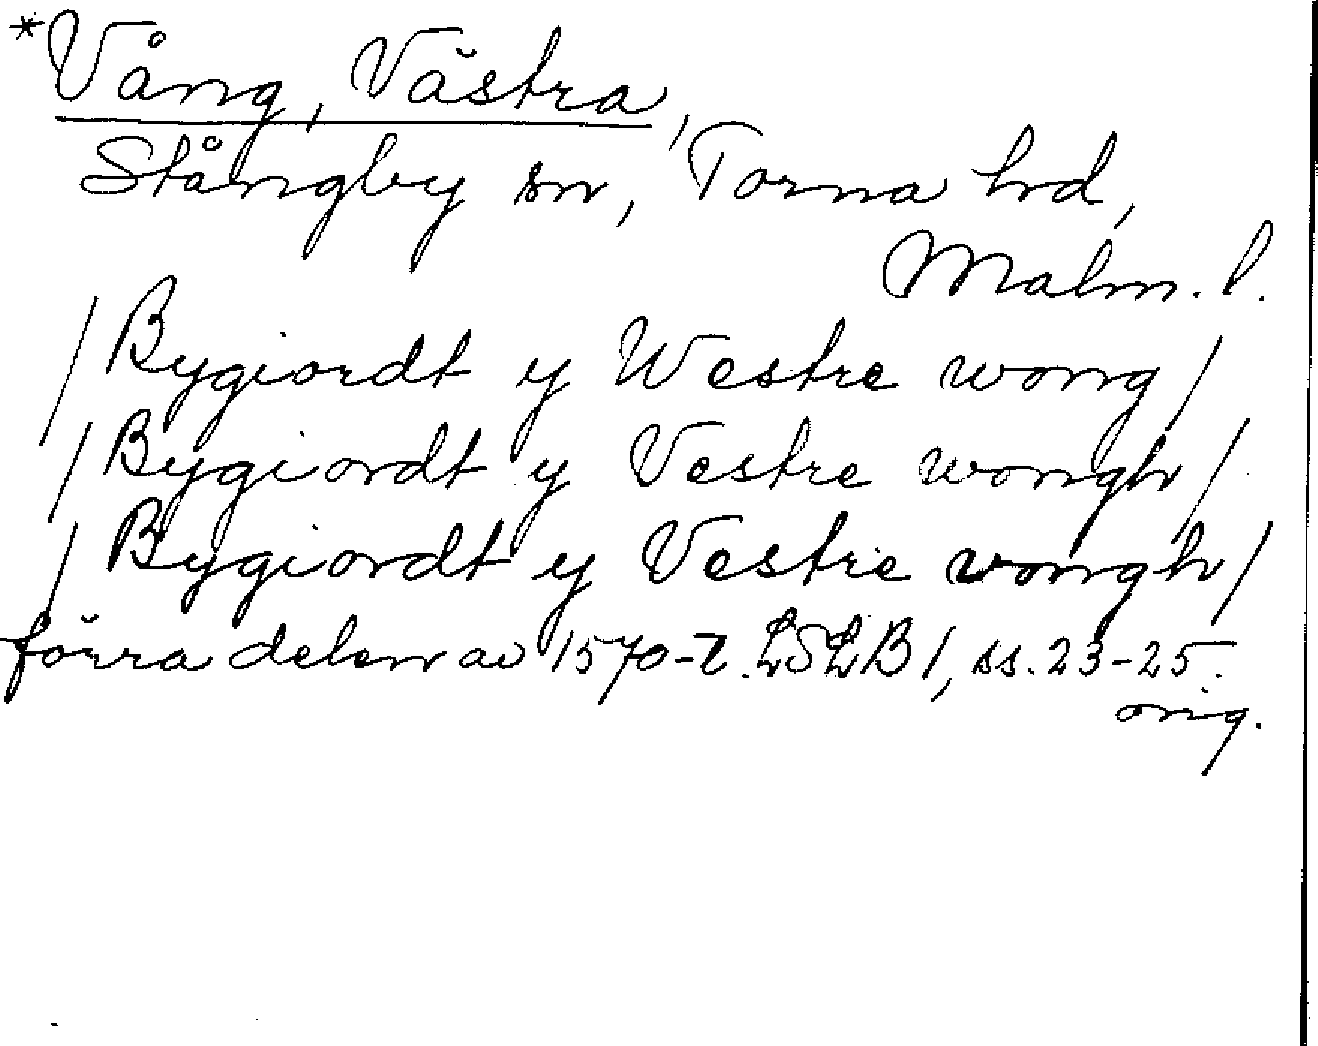 *Vång, Västra,
Stångby sn, Torna hd,
Malm. l.
/Bygiordt y Westre wong/
/Bygiordt y Vestre wongh/
/Bygiordt y Vestre vongh/
förra delen av 1570-t. LSLB 1, ss. 23-25.
orig.